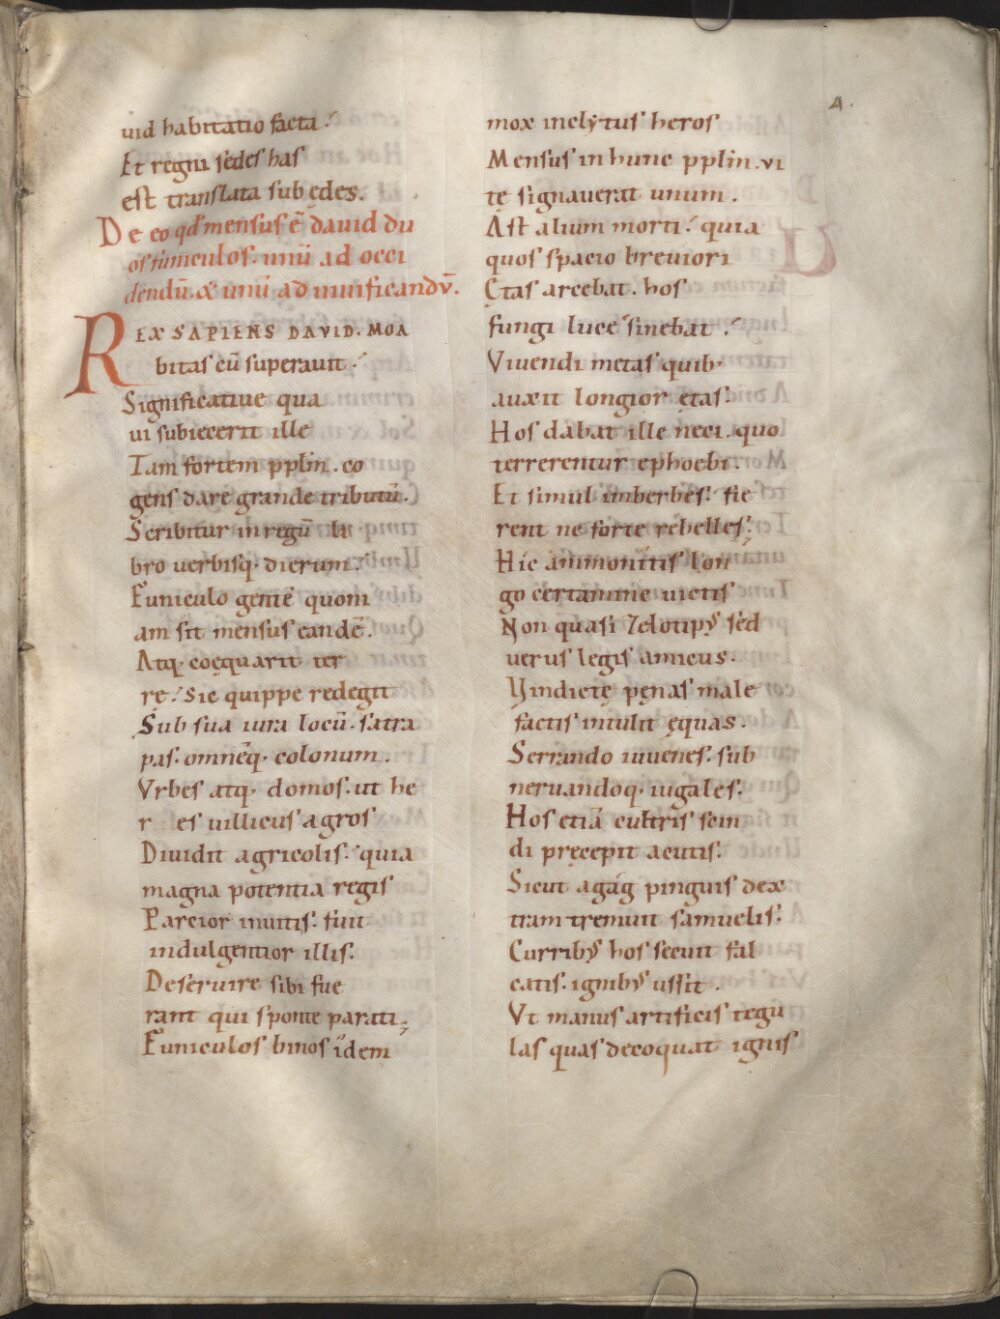 4.
uid habitatio facta.
Et regni sedes has
est translata sub ędes.
De eo qđ mensus ē dauid du
os funiculos. unū ad occi
dendū. & unū ad uiuificandū.
REX SAPIENS DAVID. MOA
bitas cū superauit.
Significatiue qua
ui subiecerit ille
Tam fortem pplm. eo
gens dare grande tributū.
Scribitur in regū li
bro uerbisq. dierum.
Funiculo gentē quoni
am sit mensus eandē.
Atq. coęquarit ter
rę. sic quippe redegit
Sub sua iura locū. satra
pas. omnēq. colonum.
Vrbes atq. domos. ut he
r es uillicus agros
Diuidit agricolis. quia
magna potentia regis
Parcior inuitis. fuit
indulgentior illis.
Deseruire sibi fue
rant qui sponte parati;
Funiculos binos idem
mox inclytus heros
Mensus in hunc pplm. vi
tę signauerit unum.
Ast alium morti. quia
quos spacio breuiori
Ętas arcebat. hos
fungi luce sinebat.
Viuendi metas quib.
auxit longior ętas.
Hos dabat ille neci. quo
terrerentur ephoebi.
Et simul imberbes. fie
rent ne forte rebelles.
Hic ammonitis lon
go certamine uictis
Non quasi zelotipꝰ sed
uerus legis amicus.
Vindictę pęnas male
factis intulit ęquas.
Serrando iuuenes. sub
neruandoq. iugales.
Hos etiā cultris scin
di pręcepit acutis.
Sicut agag pinguis dex
tram tremuit samuelis.
Curribꝰ hos secuit fal
catis. ignibꝰ ussit.
Vt manus artificis tegu
las quas decoquat ignis